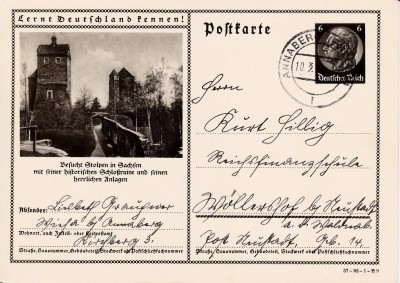 Lernt Deutschland kennen!
Postkarte
6 6
Deutsches Reich
ANNABERG
10.3.
Besucht Stolpen in Sachsen
mit seiner historischen Schloßruine und seinen
herrlichen Anlagen
Absender: Lisbeth
Wiesa by Annaberg
Wohnort, auch Zustell- oder Leitpostamt
Kirchberg 3.
Straße, Hausnummer, Gebäudeteil, Stockwerk od. Postschließfachnummer
Herrn
Kurt Hillig
Reichsfinanzschule
Wöllershof by Neustadt
a. d. Waldnab.
Post Neustadt, 14.
Straße, Hausnummer, Gebäudeteil, Stockwerk od. Postschließfachnummer
37-93-1-B9